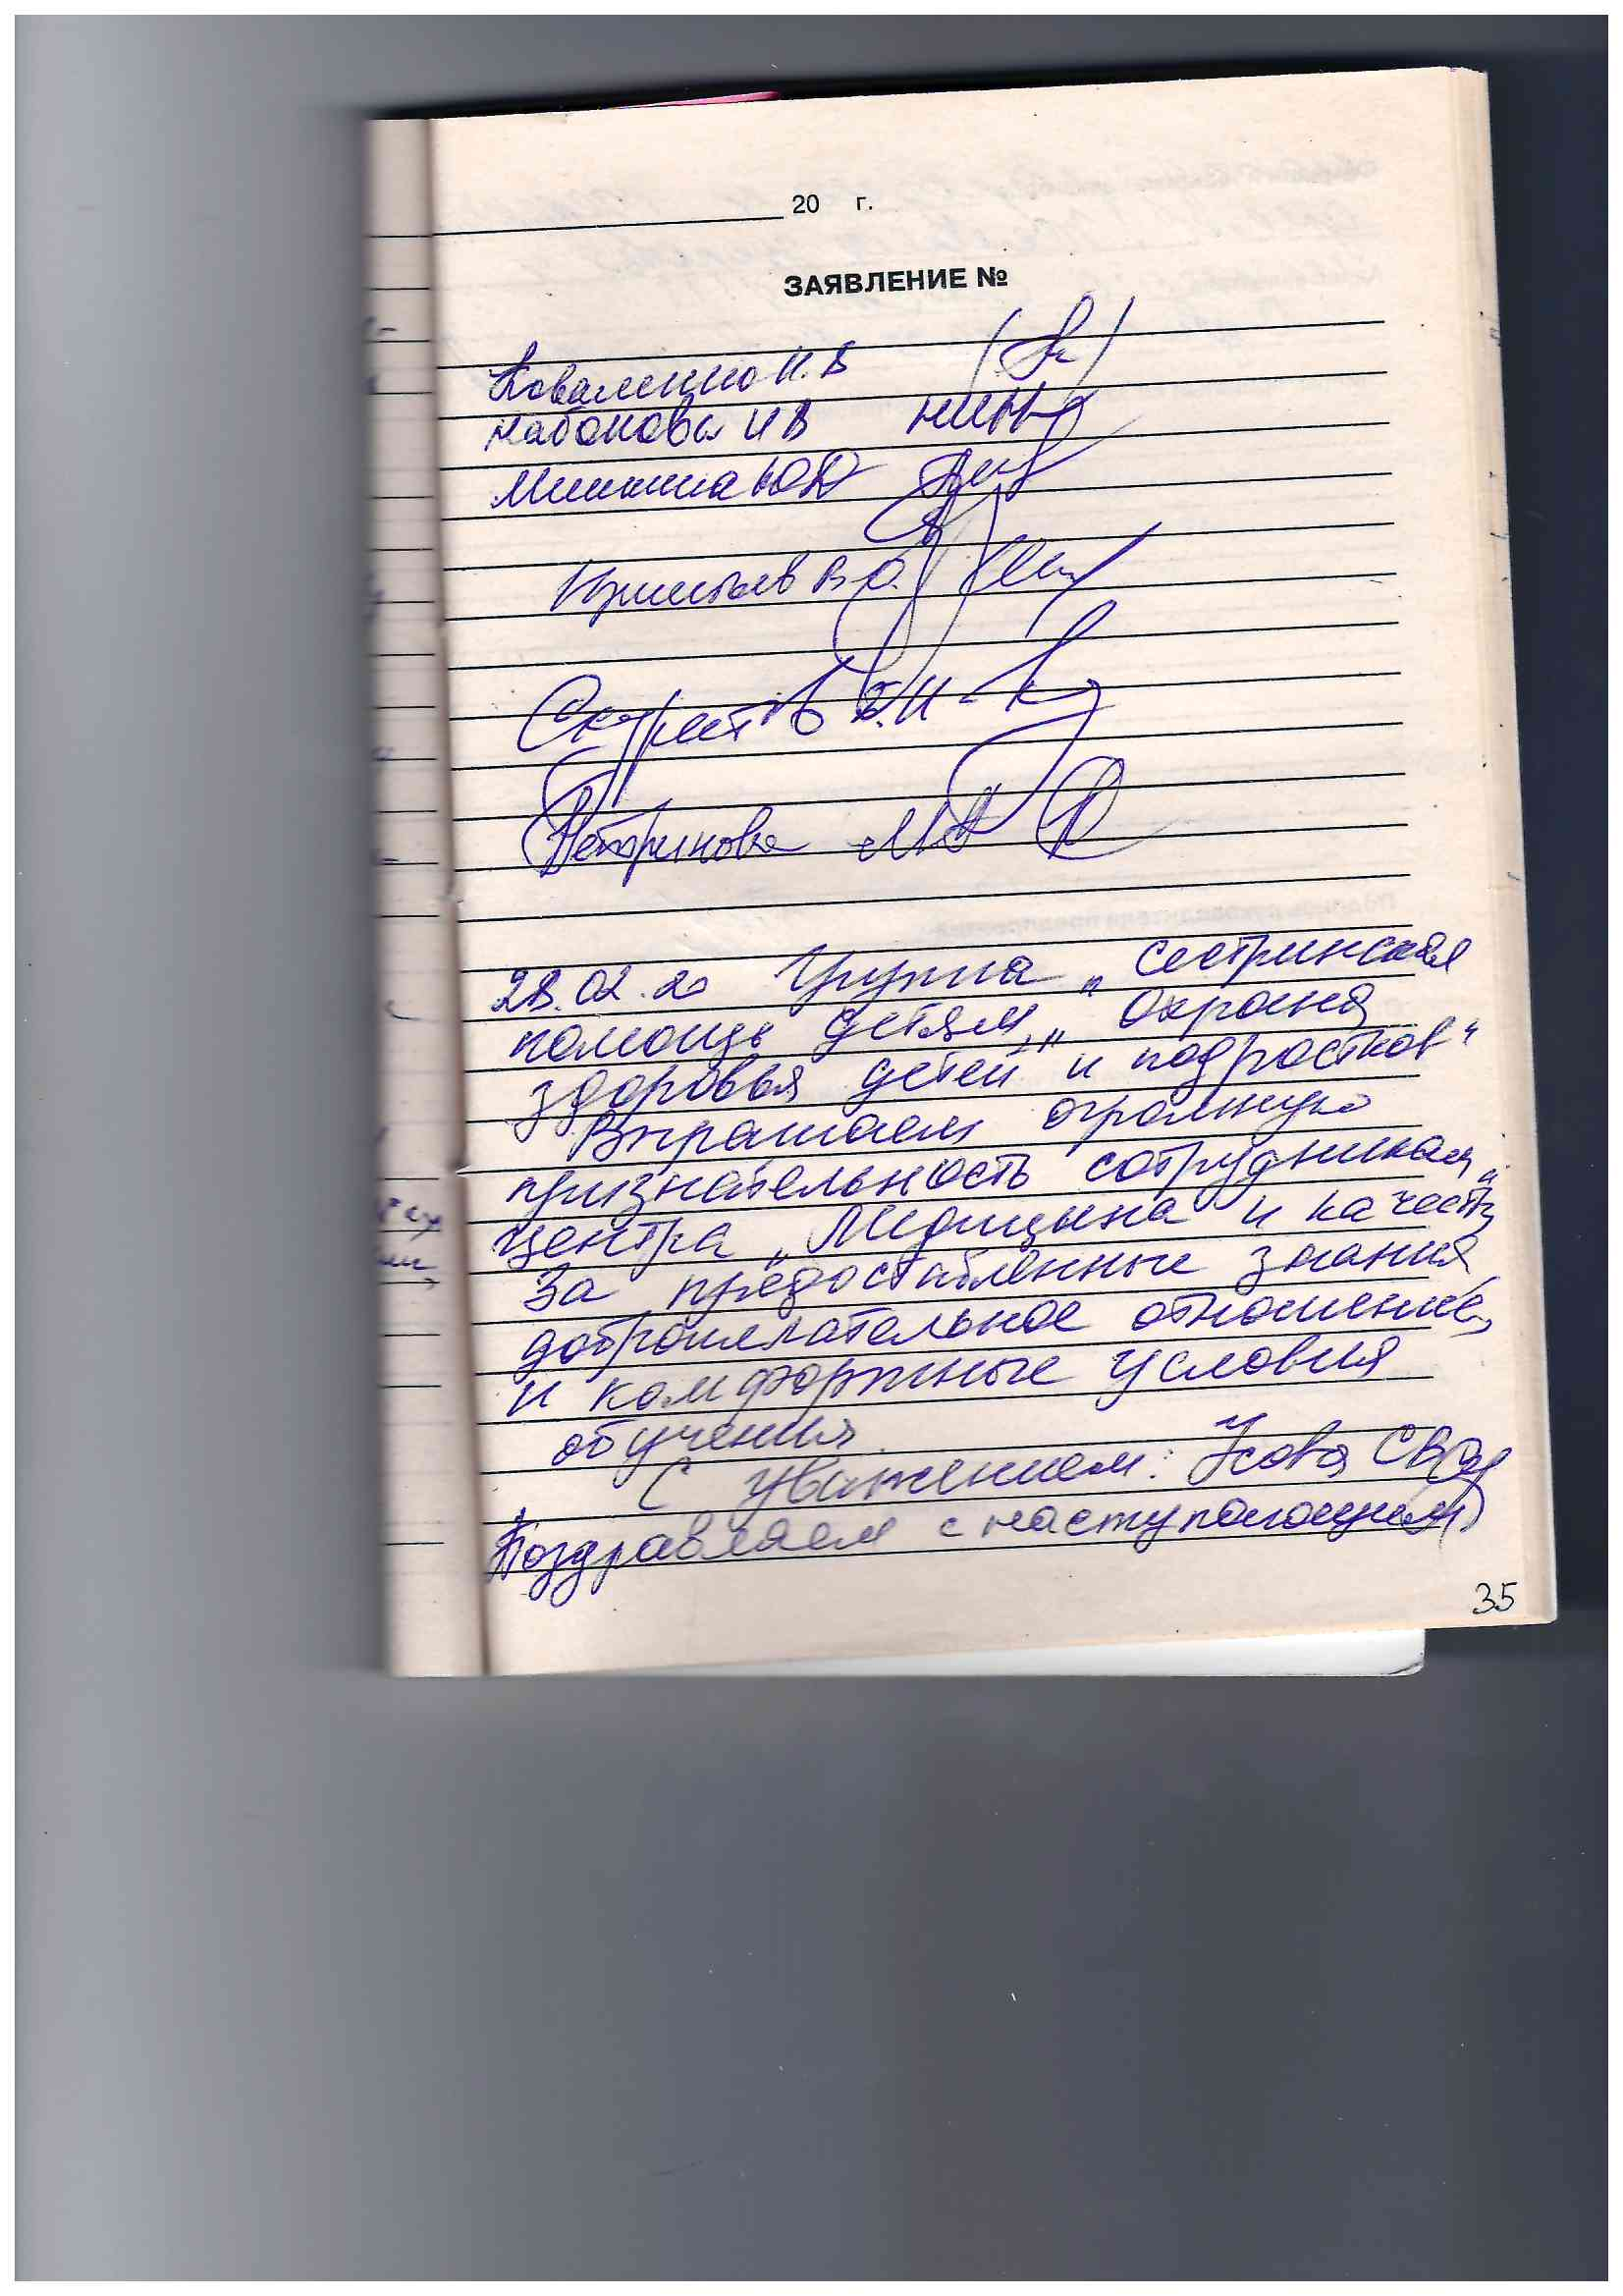 20 г.
ЗАЯВЛЕНИЕ №
Коваленко Н.В
Набокова И В
Мишина Ю
В О.
28.02.20 Группа „Сестринская
помощь детям", „Охрана
здоровья детей и подростков"
Выражаем огромную
признательность сотрудникам
центра „Медицина и качество"
За предоставленные знания
доброжелательное отношение,
и комфортные условия
обучения.
С уважением: Усова СВ
Поздравляем с наступающим
35